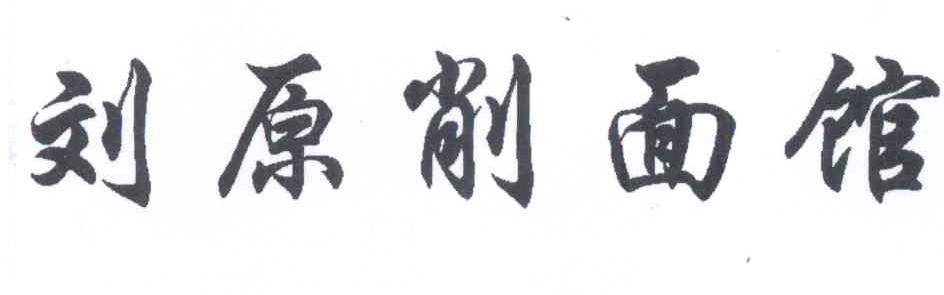 刘原削面馆